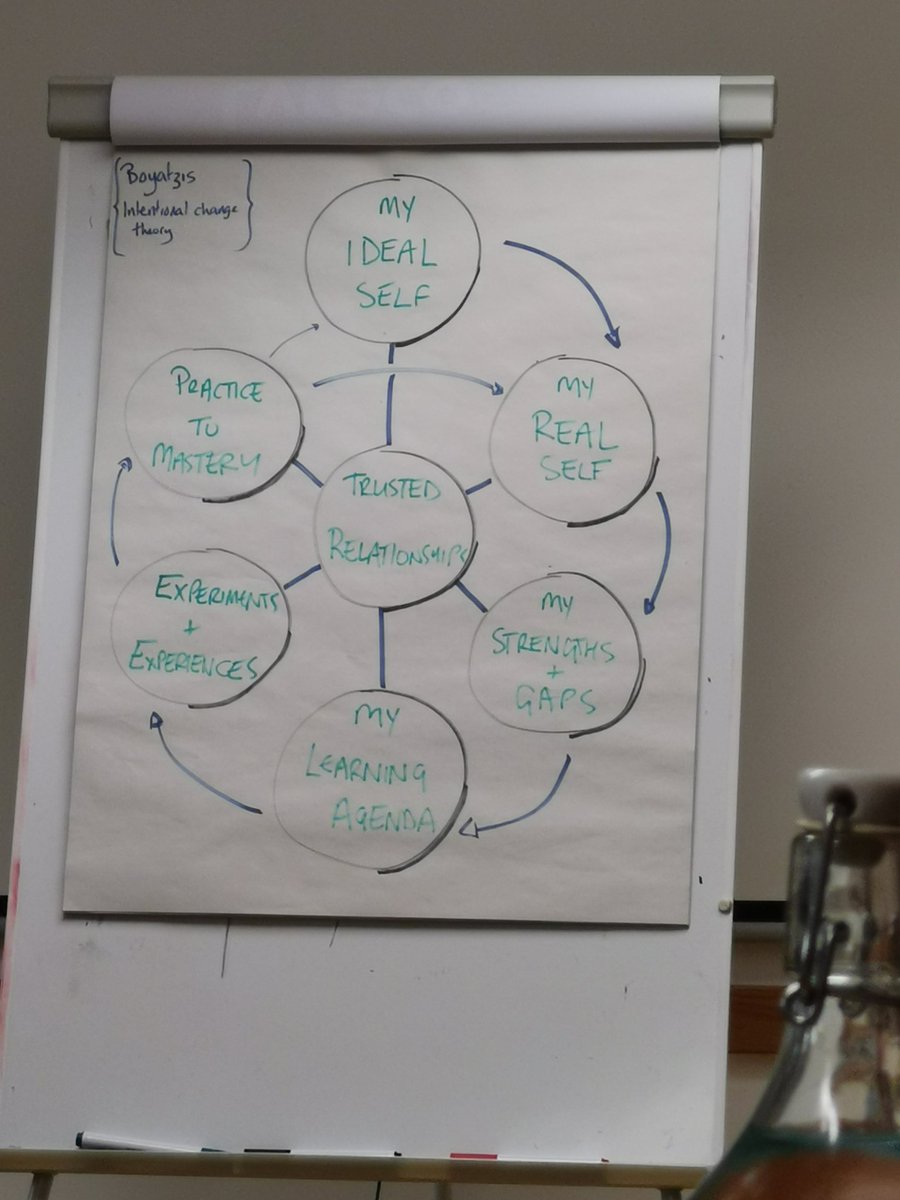 Boyatzis
Intentional change
theory
MY
IDEAL
SELF
MY
REAL
SELF
MY
STRENGTHS
+
GAPS
MY
LEARNING
AGENDA
EXPERIMENTS
+
EXPERIENCES
PRACTICE
TO
MASTERY
TRUSTED
RELATIONSHIPS